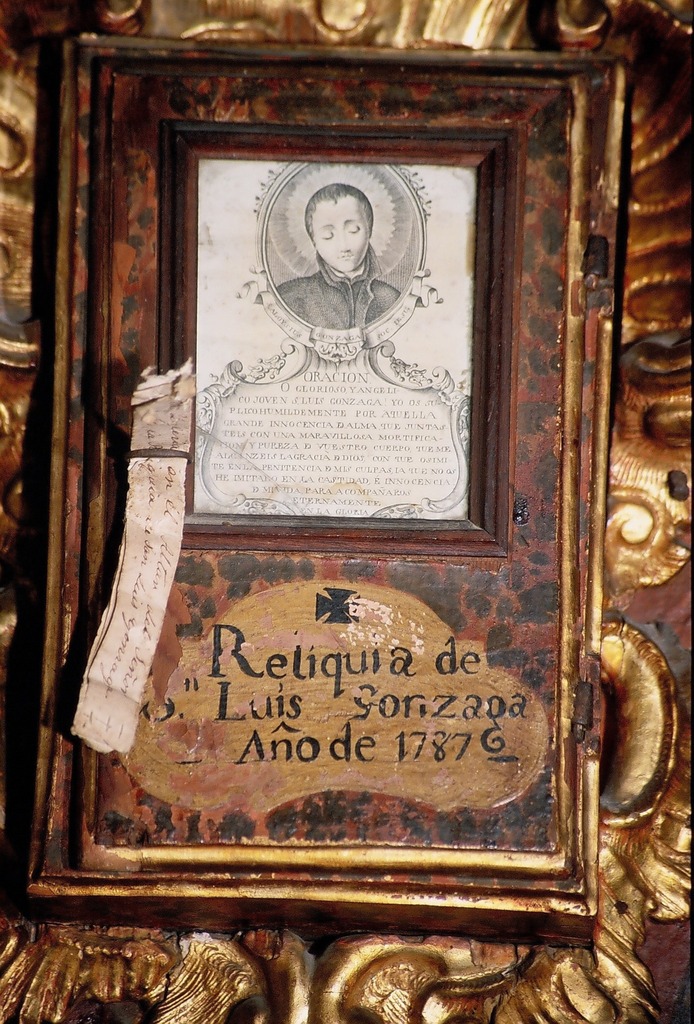 GONZAGA
ORACION
O GLORIOSO Y ANGELI-
CO JOVEN S. LUIS GONZAGA! YO OS SU
PLICO HUMILDEMENTE POR AQUELLA
GRANDE INNOCENCIA D ALMA QUE JUNTAS
TEIS CON UNA MARAVILLOSA MORTIFICA
CION Y PUREZA D VUESTRO CUERPO QUE ME
ALCANZEIS LA GRACIA D DIOS CON QUE OS IMI
TE EN LA PENITENCIA D MIS CULPAS, IA QUE NO OS
HE IMITADO EN LA CASTIDAD, E INNOCENCIA
D MI VIDA PARA ACOMPAÑAROS
ETERNAMENTE
EN LA GLORIA
Reliquia de
S.n Luis Gonzaga
Año de 1787